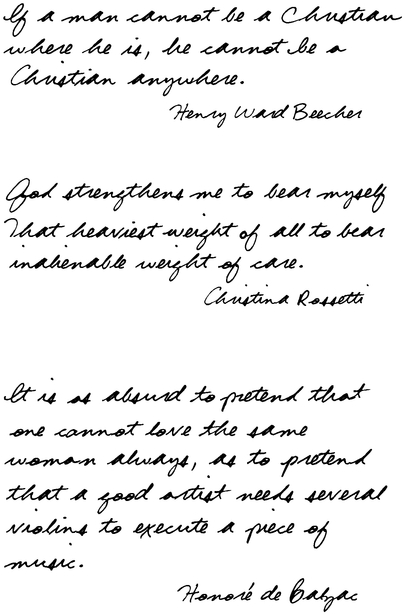 If a man cannot be a Christian
where he is, he cannot be a
Christian anywhere.
Henry Ward Beecher
God strengthens me to bear myself
That heaviest weight of all to bear
inalienable weight of care.
Christina Rossetti
It is as absurd to pretend that
one cannot love the same
woman always, as to pretend
that a good artist needs several
violins to execute a piece of
music.
Honoré de Balzac